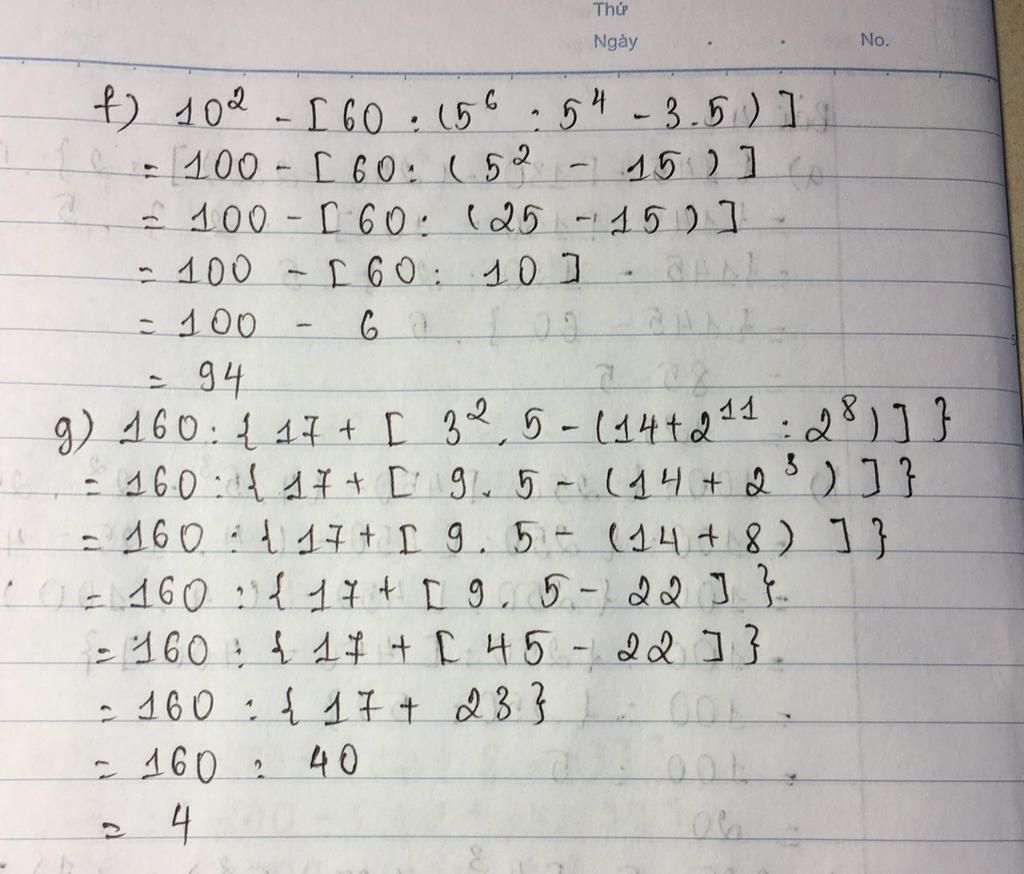 Thứ
Ngày . . No.
f) 10² - [60 : (5⁶ : 5⁴ - 3.5)]
= 100 - [60 : (5² - 15)]
= 100 - [60 : (25 - 15)]
= 100 - [60 : 10]
= 100 - 6
= 94
g) 160 : {17 + [3².5 - (14 + 2¹¹ : 2⁸)]}
= 160 : {17 + [9.5 - (14 + 2³)]}
= 160 : {17 + [9.5 - (14 + 8)]}
= 160 : {17 + [9.5 - 22]}
= 160 : {17 + [45 - 22]}
= 160 : {17 + 23}
= 160 : 40
= 4